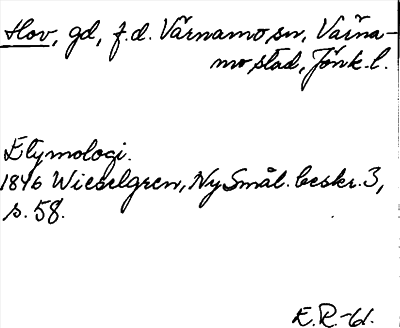 Hov, gd, f.d. Värnamo sn, Värna-
mo stad, Jönk. l.
Etymologi.
1846 Wieselgren, Ny Smål. beskr. 3,
s. 58.
E.R.-61.